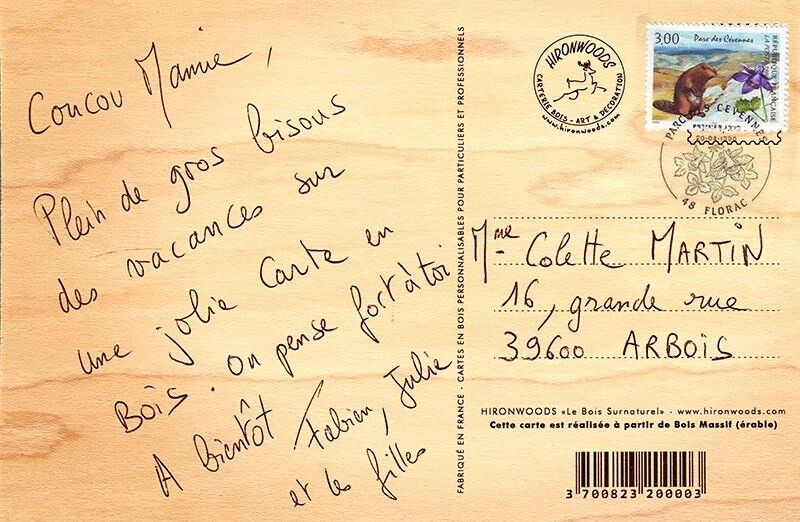 Coucou Mamie,
Plein de gros bisous
des vacances sur
une jolie Carte en
Bois. On pense fort à toi
A bientôt Fabien, Julie
et les filles
FABRIQUÉ EN FRANCE - CARTES EN BOIS PERSONNALISABLES POUR PARTICULIERS ET PROFESSIONNELS
HIRONWOODS
CARTERIE BOIS - ART & DECORATION
www.hironwoods.com
3,00 Parc des Cévennes
RÉPUBLIQUE FRANÇAISE
LA POSTE
PARC DES CEVENNES
48 FLORAC
Mme Colette MARTIN
16, grande rue
39600 ARBOIS
HIRONWOODS «Le Bois Surnaturel» - www.hironwoods.com
Cette carte est réalisée à partir de Bois Massif (érable)
3 700823 200003